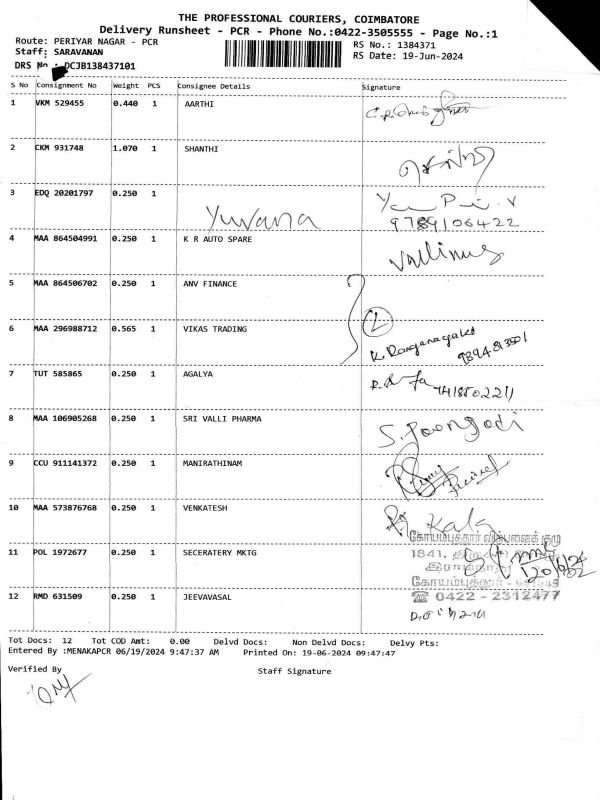 THE PROFESSIONAL COURIERS, COIMBATORE
Delivery Runsheet - PCR - Phone No.:0422-3505555 - Page No.:1
Route: PERIYAR NAGAR - PCR
RS No.: 1384371
Staff: SARAVANAN
RS Date: 19-Jun-2024
DRS No : DCJB138437101
S No Consignment No Weight PCS Consignee Details Signature
1 VKM 529455 0.440 1 AARTHI
2 CKM 931748 1.070 1 SHANTHI
3 EDQ 20201797 0.250 1
Yuvana
9789106422
4 MAA 864504991 0.250 1 K R AUTO SPARE
5 MAA 864506702 0.250 1 ANV FINANCE
2
6 MAA 296988712 0.565 1 VIKAS TRADING
K. Ranganayaki
7 TUT 585865 0.250 1 AGALYA
8 MAA 106905268 0.250 1 SRI VALLI PHARMA
S. Poongodi
9 CCU 911141372 0.250 1 MANIRATHINAM
10 MAA 573876768 0.250 1 VENKATESH
Kala
கோயம்புத்தூர் விற்பனைக் குழு
11 POL 1972677 0.250 1 SECERATERY MKTG
1841.
☎ 0422 - 2312477
12 RMD 631509 0.250 1 JEEVAVASAL
Tot Docs: 12 Tot COD Amt: 0.00 Delvd Docs: Non Delvd Docs: Delvy Pts:
Entered By :MENAKAPCR 06/19/2024 9:47:37 AM Printed On: 19-06-2024 09:47:47
Verified By
Staff Signature